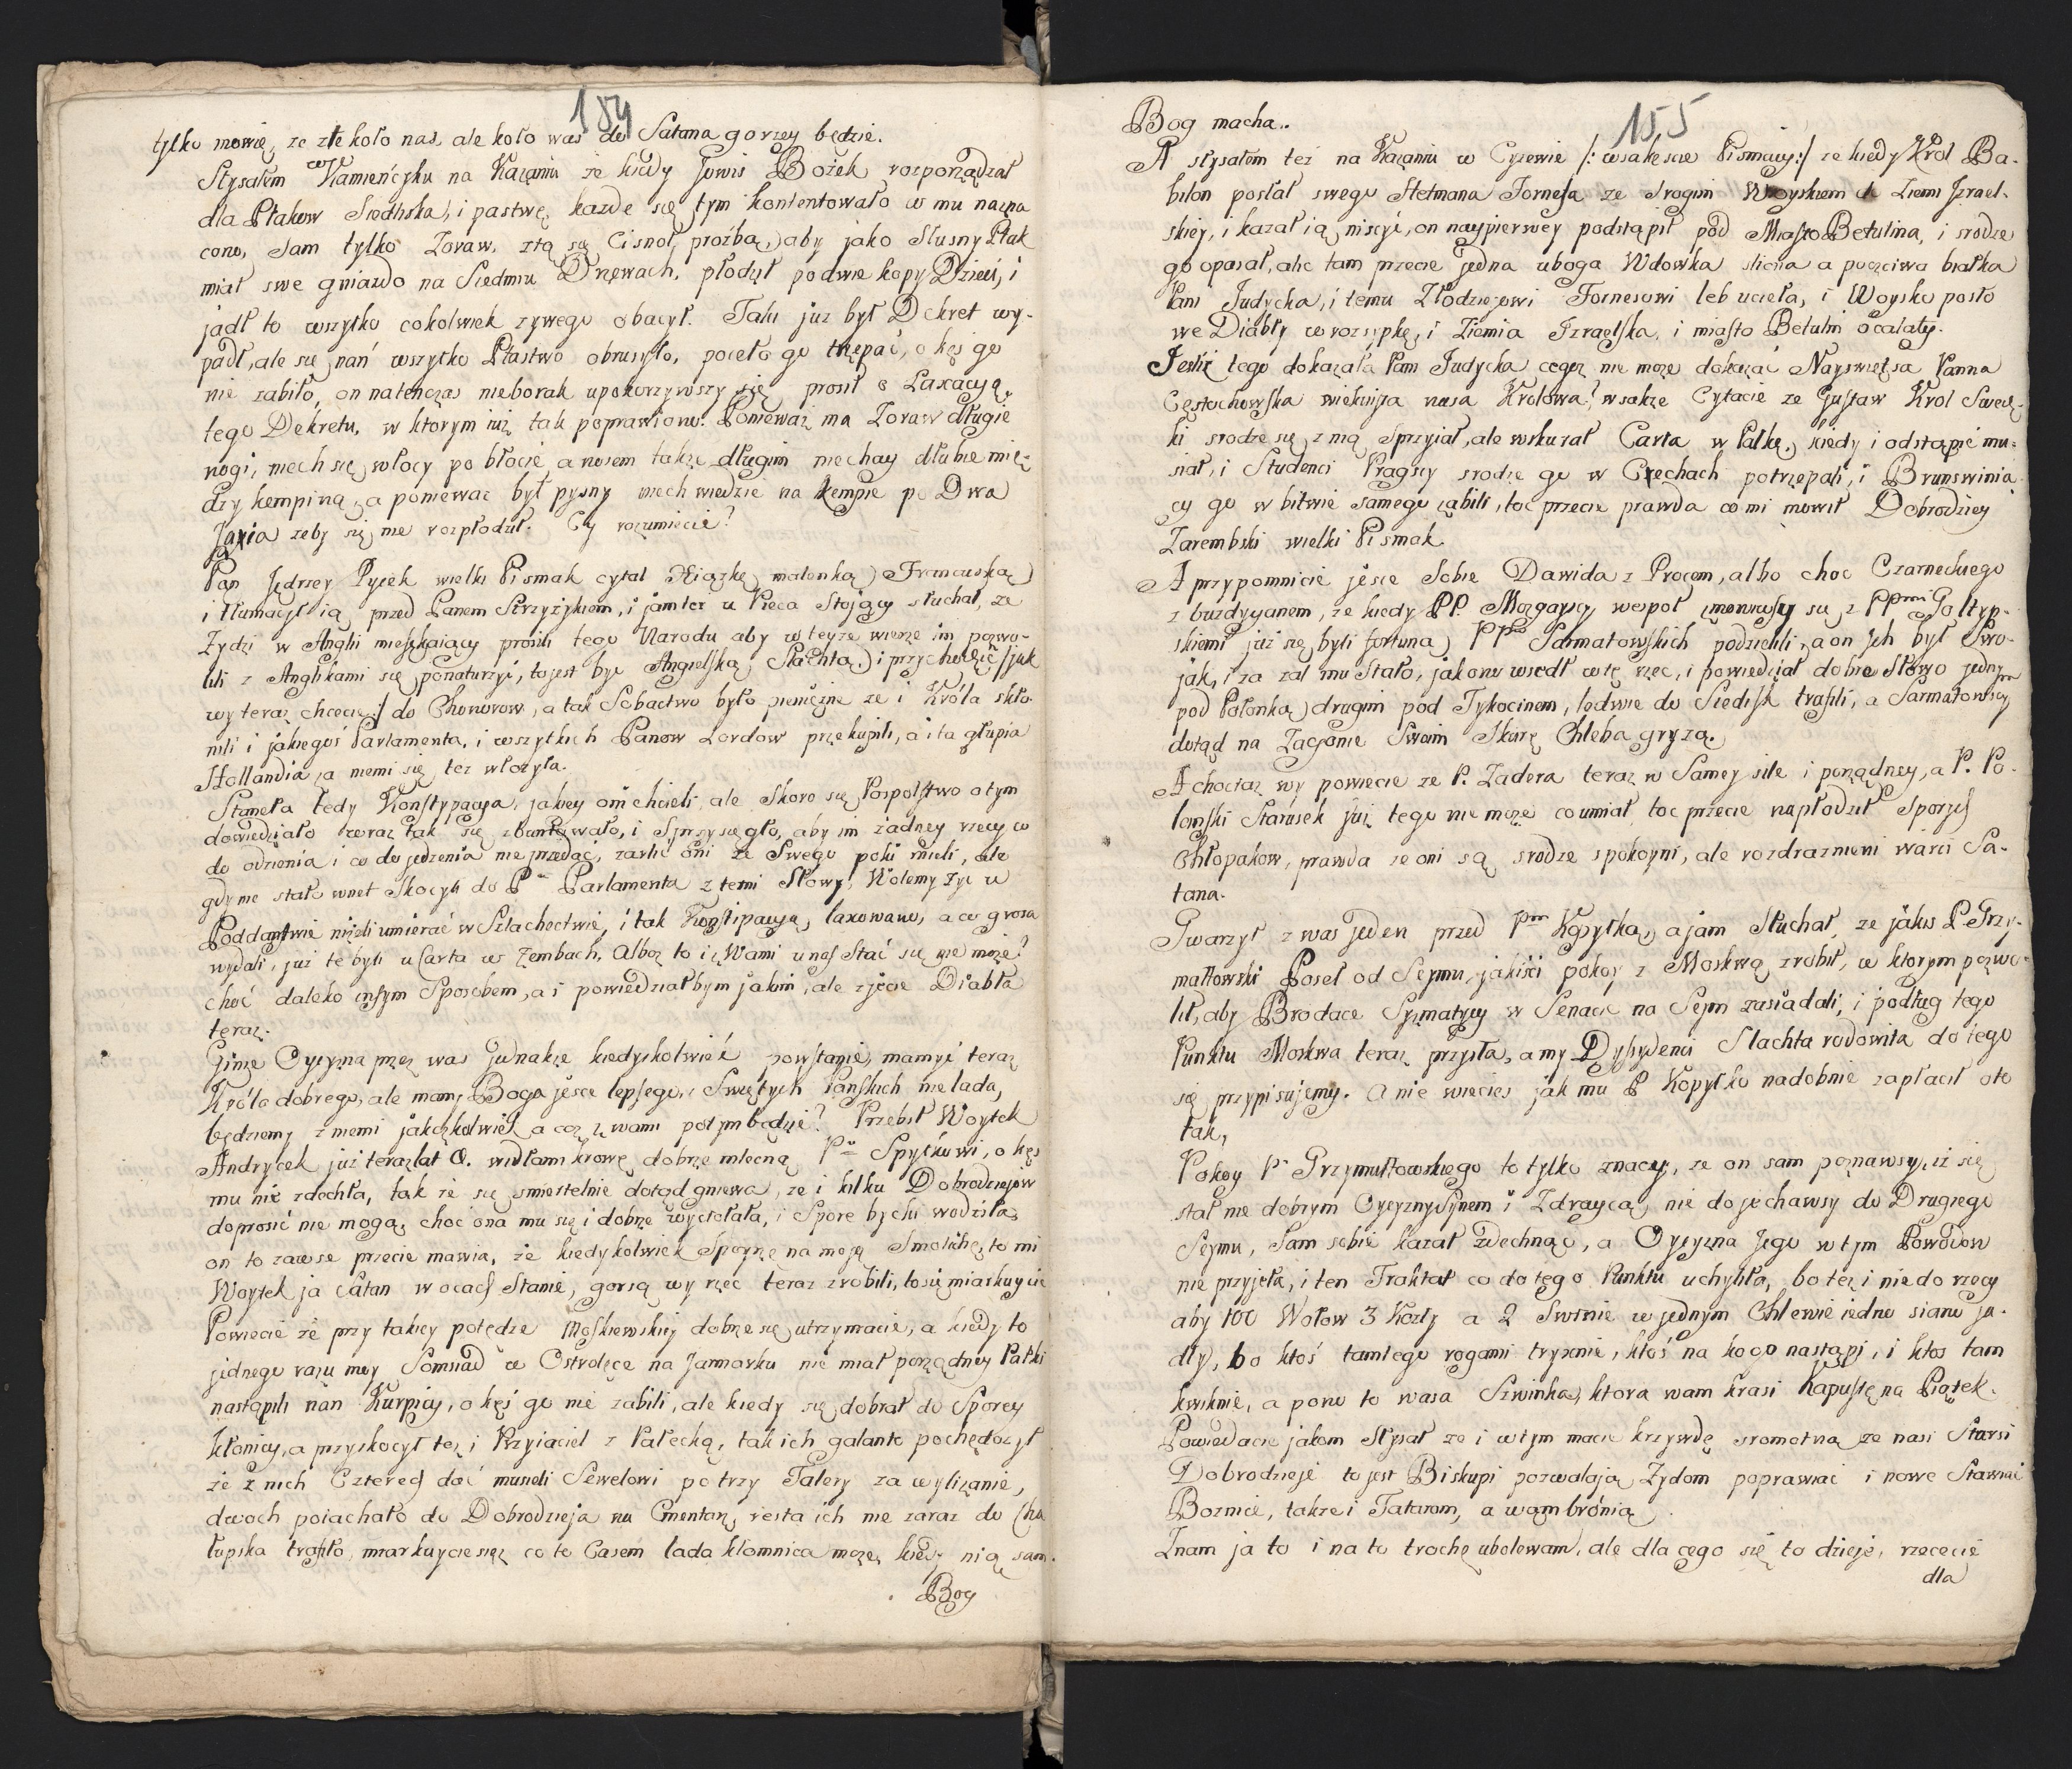 184
tylko mowię, ze zle koło nas, ale koło was do Satana gorzey będzie.
Słysałem w Kamieńcyku na Kazaniu że kiedy Jowis Bożek rozporządzał
dla Ptakow Siedliska, i pastwę, kazde się tym kontentowało co mu nazna
cono, Sam tylko Zoraw, ztą się Cisnoł prożbą, aby jako Slusny Ptak
miał swe gniazdo na Siedmiu Drzewach, płodził po dwie kopy Dzieci, i
jadł to wszytko cokolwiek zywego obacył. Taki juz był Dekret wy-
padł, ale się nań wszytko Ptastwo obrusyło, pocęło go trzepać, o kęs go
nie zabiło, on natenczas nieborak upokorzywszy się prosił o Laxacyą
tego Dekretu, w ktorym iuż tak poprawiono: Ponieważ ma Zoraw długie
nogi, niech się włocy po błocie, a nosem także długim niechay dłubie mię-
dzy kempiną, a poniewaz był pysny niech wiedzie na kempie po Dwa
Jayia zeby się nie rozpłodził. Cy rozumiecie?
Pan Jędrzey Pycek wielki Pismak cytał Xiązkę malonką Francuską
i tłumacył ią przed Panem Strzyżykiem, i jamtez u Pieca Stojący słuchał, ze
Zydzi w Anglii mieszkaiący prosili tego Narodu aby w teyze wierze im pozwo-
lili z Anglikami się ponaturzyć, to jest być Angielską Slachtą) i przychodzić /:jak
wy teraz chcecie:/ do Chonorow, a tak Sobactwo było pieniężne ze i Króla skło-
nili i jakiegoś Parlamenta, i wszytkich Panow Lordow przekupili, a i ta głupia
Hollandia za niemi się tez włozyła.
Staneła tedy Konstypacya, jakiey oni chcieli, ale Skoro się Pospolstwo o tym
dowiedziało zaraz tak się zbuntowało, i Sprzysięgło, aby im żadney rzecy co
do odzienia i co do jedzenia nie przedać, zarlić oni ze Swego poki mieli, ale
gdy nie stało wnet Skocyli do P. Parlamenta z temi Słowy: Wolemy żyć w
Poddaństwie niżeli umierać w Szlachectwie, i tak Konstipacyą laxowano, a co grosa
wydali, juz te byli u Carta w zembach, Alboz to i z Wami u nas Stać się nie może?
choć daleko insym Sposobem, a i powiedziałbym jakim, ale zjecie Diabła
teraz.
Ginie Oycyzna przez was jednakze kiedyskolwiek powstanie, mamyć teraz
Króla dobrego, ale mamy Boga jesce lepsego, i Swiętych Pańskich nie lada,
będziemy z niemi jakożkolwiek a coz z wami potym będzie? Przebił Woytek
Andrycek juz teraz lat 2. widłami krowę dobrze mlecną P. Spytkowi, o kęs
mu nie zdechła, tak ze się smiertelnie dotąd gniewa, ze i kilku Dobrodziejow
doprosić nie mogą, choć ona mu się i dobrze wycielała, i Spore bycki wodziła,
on to zawse przecie mawia, że kiedykolwiek Spoyrzę na moję Smolichę, to mi
Woytek ja Satan w ocach Stanie, gorsą wy rzec teraz zrobili, to się miarkuycie
Powiecie że przy takiey potędze Moskiewskiey dobrze się utrzymacie, a kiedy to
jednego razu moy Somsiad w Ostrołęce na Jarmarku nie miał porządney Pałki
nastąpili nań Kurpicy, o kęs go nie zabili, ale kiedy się dobrał do Sporey
kłonicy, a przyskocył tez i Przyiaciel z Pałecką, tak ich galanto pochędozył
że z nich Czterech dać musieli Sewelowi po trzy Talery za wylizanie,
dwoch poiachało do Dobrodzieja na Cmentarz, resta ich nie zaraz do Cha
łupska trafiło, miarkuycie się z co to Casem lada kłomnica może, kiedy nią sam
Bog
155
Bog macha.
A słysałem tez na Kazaniu w Cyzewie /:wsakeście Pismacy:/ ze kiedy Krol Ba-
bilon posłał swego Hetmana Fornesa ze Srogim Woyskiem do Ziemi Izrael-
skiey, i kazał ią niscyć, on naypierwey podstąpił pod Miasto Betulina, i srodze
go opasał, alić tam przecie jedna uboga Wdowka slicna a pocciwa białka
Pani Judycka, i temu Złodziejowi Fornesowi łeb ucieła, i Woysko posło
we Diabły w rozsypkę, i Ziemia Izraelska, i miasto Betulin ocalały.
Jeśliż tego dokazała Pani Judycka cegoz nie może dokazać Nayswiętsa Panna
Cęstochowska wiekuista nasa Krolowa? wsakze Cytacie ze Gustaw Krol Swedz-
ki srodze się z nią Sprzyiał, ale wskurał Carta w Pałkę, kiedy i odstąpić mu-
siał, i Studenci Pragscy srodze go w Czechach potrzepali, i Brunswinia
cy go w bitwie samego zabili, toć przecie prawda co mi mowił Dobrodziey
Zarembski wielki Pismak.
A przypomnicie jesce Sobie Dawida z Procem, albo choć Czarneckiego
z buzdyganem, ze kiedy PP. Mozgawscy wespoł zmowiwsy się z PPmi Goltyp-
skiemi juz się byli fortuną PPw Sarmatowskich podzielili, a on Ich był Swo-
jak, i za zal mu Stało, jak onu wsedł w tę rzec, i powiedział dobre Słowo jednym
pod Połonką, drugim pod Tykocinem, ledwie do Siedlisk trafili, a Sarmatowscy
dotąd na Zagonie Swoim Skorę Chleba gryzą.
A chociaz wy powiecie ze P. Zadera teraz w Samey sile i porządney, a P. Po-
lanski Starusek już tego nie może co umiał, toc przecie napłodził Sporych
Chłopakow, prawda ze oni są srodze spokoyni, ale rozdraznieni warci Sa-
tana.
Gwarzył z was jeden przed Pm Kopytką, a jam Słuchał, ze jakis P. Grzy-
małtowski Poseł od Seymu, jakiści pokoy z Moskwą zrobił, w ktorym pozwo-
lił, aby Brodace Syzmatycy w Senacie na Seym zasiadali, i podług tego
Punktu Moskwa teraz przysła, a my Dysydenci Slachta rodowita do tego
się przypisujemy. A nie wiecies jak mu P Kopytko nadobnie zapłacił oto
tak,
Pokoy P. Grzymułtowskiego to tylko znacy, ze on sam poznawsy, iż się
stał nie dobrym Oycyzny Synem i Zdraycą, nie dojechawsy do Drugiego
Seymu, Sam sobie kazał zdechnąć, a Oycyzna Jego w tym Powodow
nie przyjeła, i ten Traktat co do tego Punktu uchyliła, bo też i nie do rzecy
aby 100 Wołow 3 Kozły a 2 Swinie w jednym Chlewie iedno siano ja-
dły, bo ktoś tamtego rogami tryxnie, ktoś na kogo nastąpi, i ktos tam
kwiknie, a pono to wasa Szwinka, ktora wam krasi Kapustę na Piątek.
Powiedacie jakom Słysał ze i w tym macie krzywdę sromotną ze nasi Starsi
Dobrodzieje to jest Biskupi pozwalają Zydom poprawiać i nowe Stawiać
Boznice, takze i Tatarom, a wam brónią.
Znam ja to i na to trochę ubolewam, ale dla cego się to dzieje, rzececie
dla